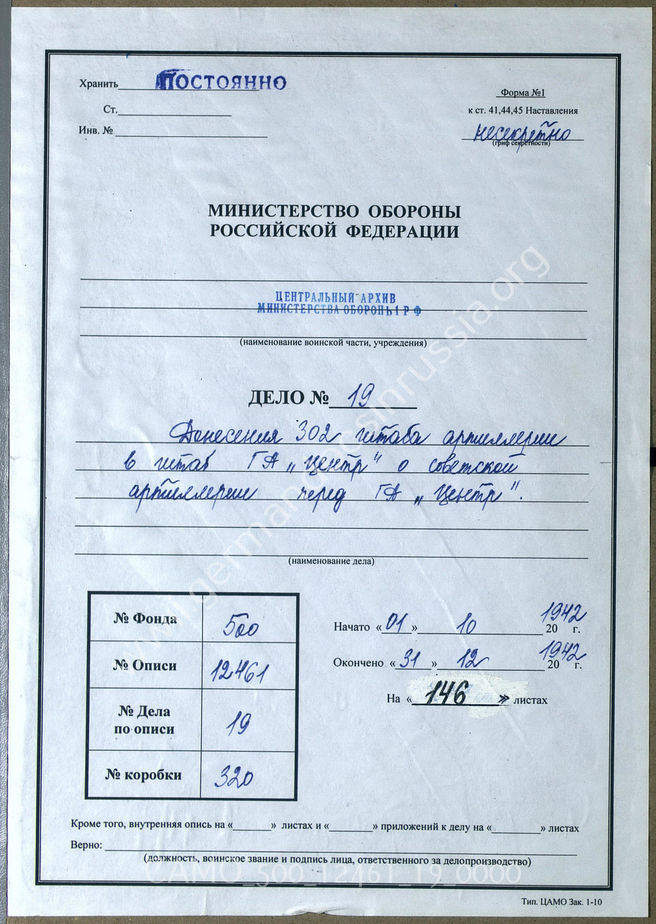 Хранить ПОСТОЯННО
Ст.
Инв. №
Форма №1
к ст. 41,44,45 Наставления
несекретно
(гриф секретности)
МИНИСТЕРСТВО ОБОРОНЫ
РОССИЙСКОЙ ФЕДЕРАЦИИ
ЦЕНТРАЛЬНЫЙ АРХИВ
МИНИСТЕРСТВА ОБОРОНЫ РФ
(наименование воинской части, учреждения)
ДЕЛО № 19
Донесения 302 штаба артиллерии
в штаб ГА „Центр" о советской
артиллерии перед ГА „Центр".
(наименование дела)
№ Фонда 500
№ Описи 12461
№ Дела по описи 19
№ коробки 320
Начато «01» 10 1942 20 г.
Окончено «31» 12 1942 20 г.
На «146» листах
Кроме того, внутренняя опись на «______» листах и «______» приложений к делу на «______» листах
Верно:
(должность, воинское звание и подпись лица, ответственного за делопроизводство)
CAMO_500_12461_19_0000
Тип. ЦАМО Зак. 1-10